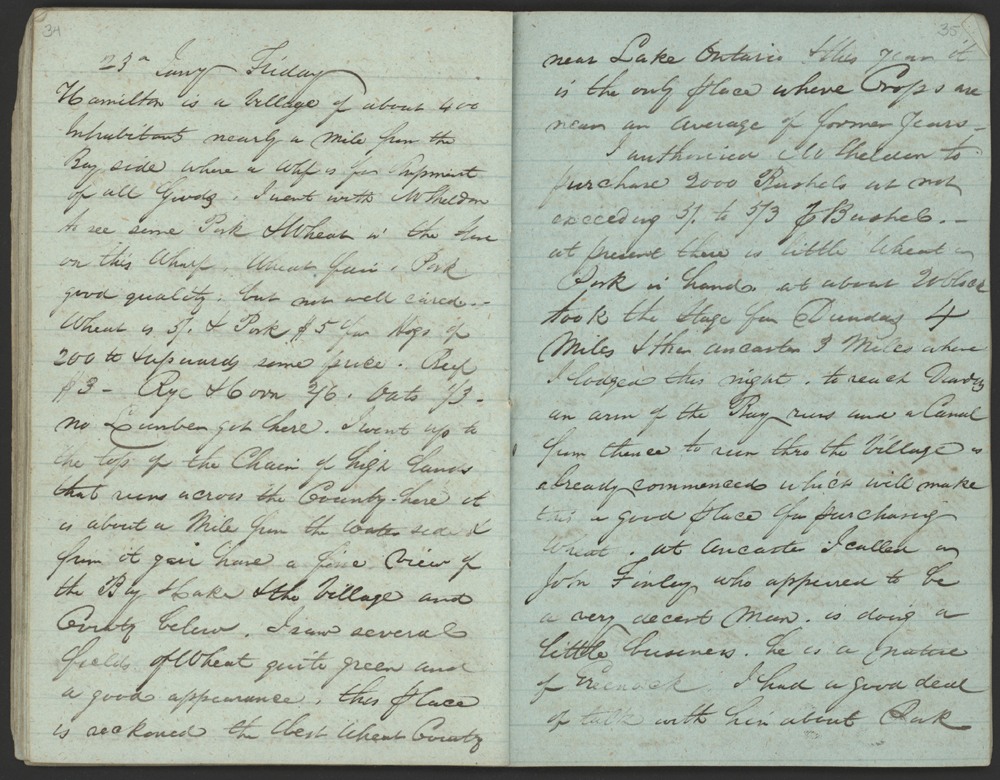 34
23rd Jany Friday
Hamilton is a Village of about 400
Inhabitants nearly a mile from the
Bay side where a Whf is for Shipment
of all Goods. I went with M Sheldon
to see some Pork & Wheat in the Store
on this Wharf. Wheat fair. Pork
good quality. but not well cured.-
Wheat is 5/. & Pork $5 for Hogs of
200 to & upwards same price. Beef
$3 - Rye & Corn 2/6. Oats 1/3 -
no Lumber got here. I went up to
the top of the Chain of high Lands
that runs across the County here it
is about a Mile from the water side &
from it you have a fine view of
the Bay & Lake & the Village and
County below. I saw several
fields of Wheat quite green and
a good appearance. this place
is reckoned the best Wheat County
35
near Lake Ontario & this year it
is the only place where Crops are
near an average of former years -
I authorised M Sheldon to
purchase 2000 Bushels at not
exceeding 5/. to 5/3 Bushel. -
at present there is little Wheat or
Pork in hand. at about 2 oClock
took the Stage for Dundas 4
Miles & then Ancaster 3 Miles where
I lodged this night. to reach Dundas
an arm of the Bay runs and a Canal
from thence to run thro the Village is
already commenced which will make
this a good place for purchasing
Wheat. at Ancaster I called on
John Finley who appeared to be
a very decent Man. is doing a
little business. he is a native
of I had a good deal
of talk with him about Pork